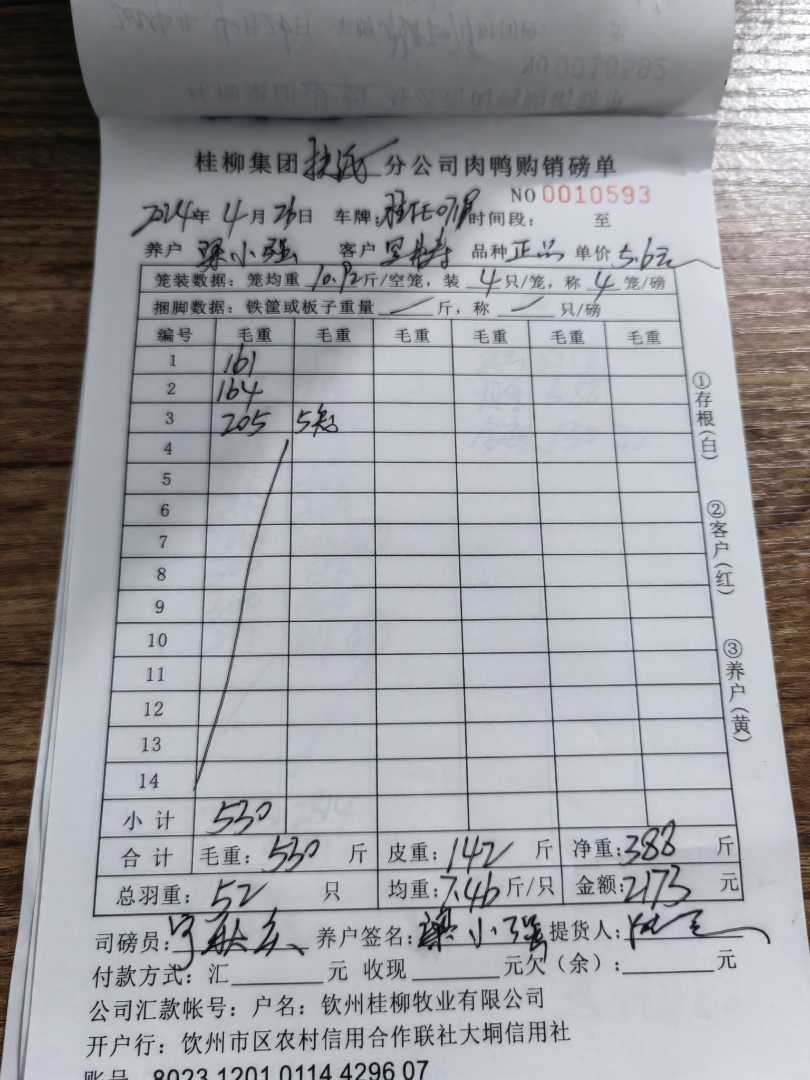 NO 0010592
桂柳集团 分公司肉鸭购销磅单
NO 0010593
2024年 4月26日 车牌: 时间段: 至
养户 梁小强 客户 品种 正品 单价 5.6元
笼装数据: 笼均重 10.92斤/空笼, 装 4只/笼, 称 4笼/磅
捆脚数据: 铁筐或板子重量 斤, 称 只/磅
编号 毛重 毛重 毛重 毛重 毛重 毛重
1 161
2 164
3 205 5笼
4
5
6
7
8
9
10
11
12
13
14
小计 530
合计 毛重: 530 斤 皮重: 142 斤 净重: 388 斤
总羽重: 52 只 均重: 7.46 斤/只 金额: 2173 元
司磅员: 养户签名: 梁小强 提货人:
付款方式: 汇 元 收现 元欠(余): 元
公司汇款帐号: 户名: 钦州桂柳牧业有限公司
开户行: 钦州市区农村信用合作联社大垌信用社
账号 8023 1201 0114 4296 07
①存根(白)
②客户(红)
③养户(黄)